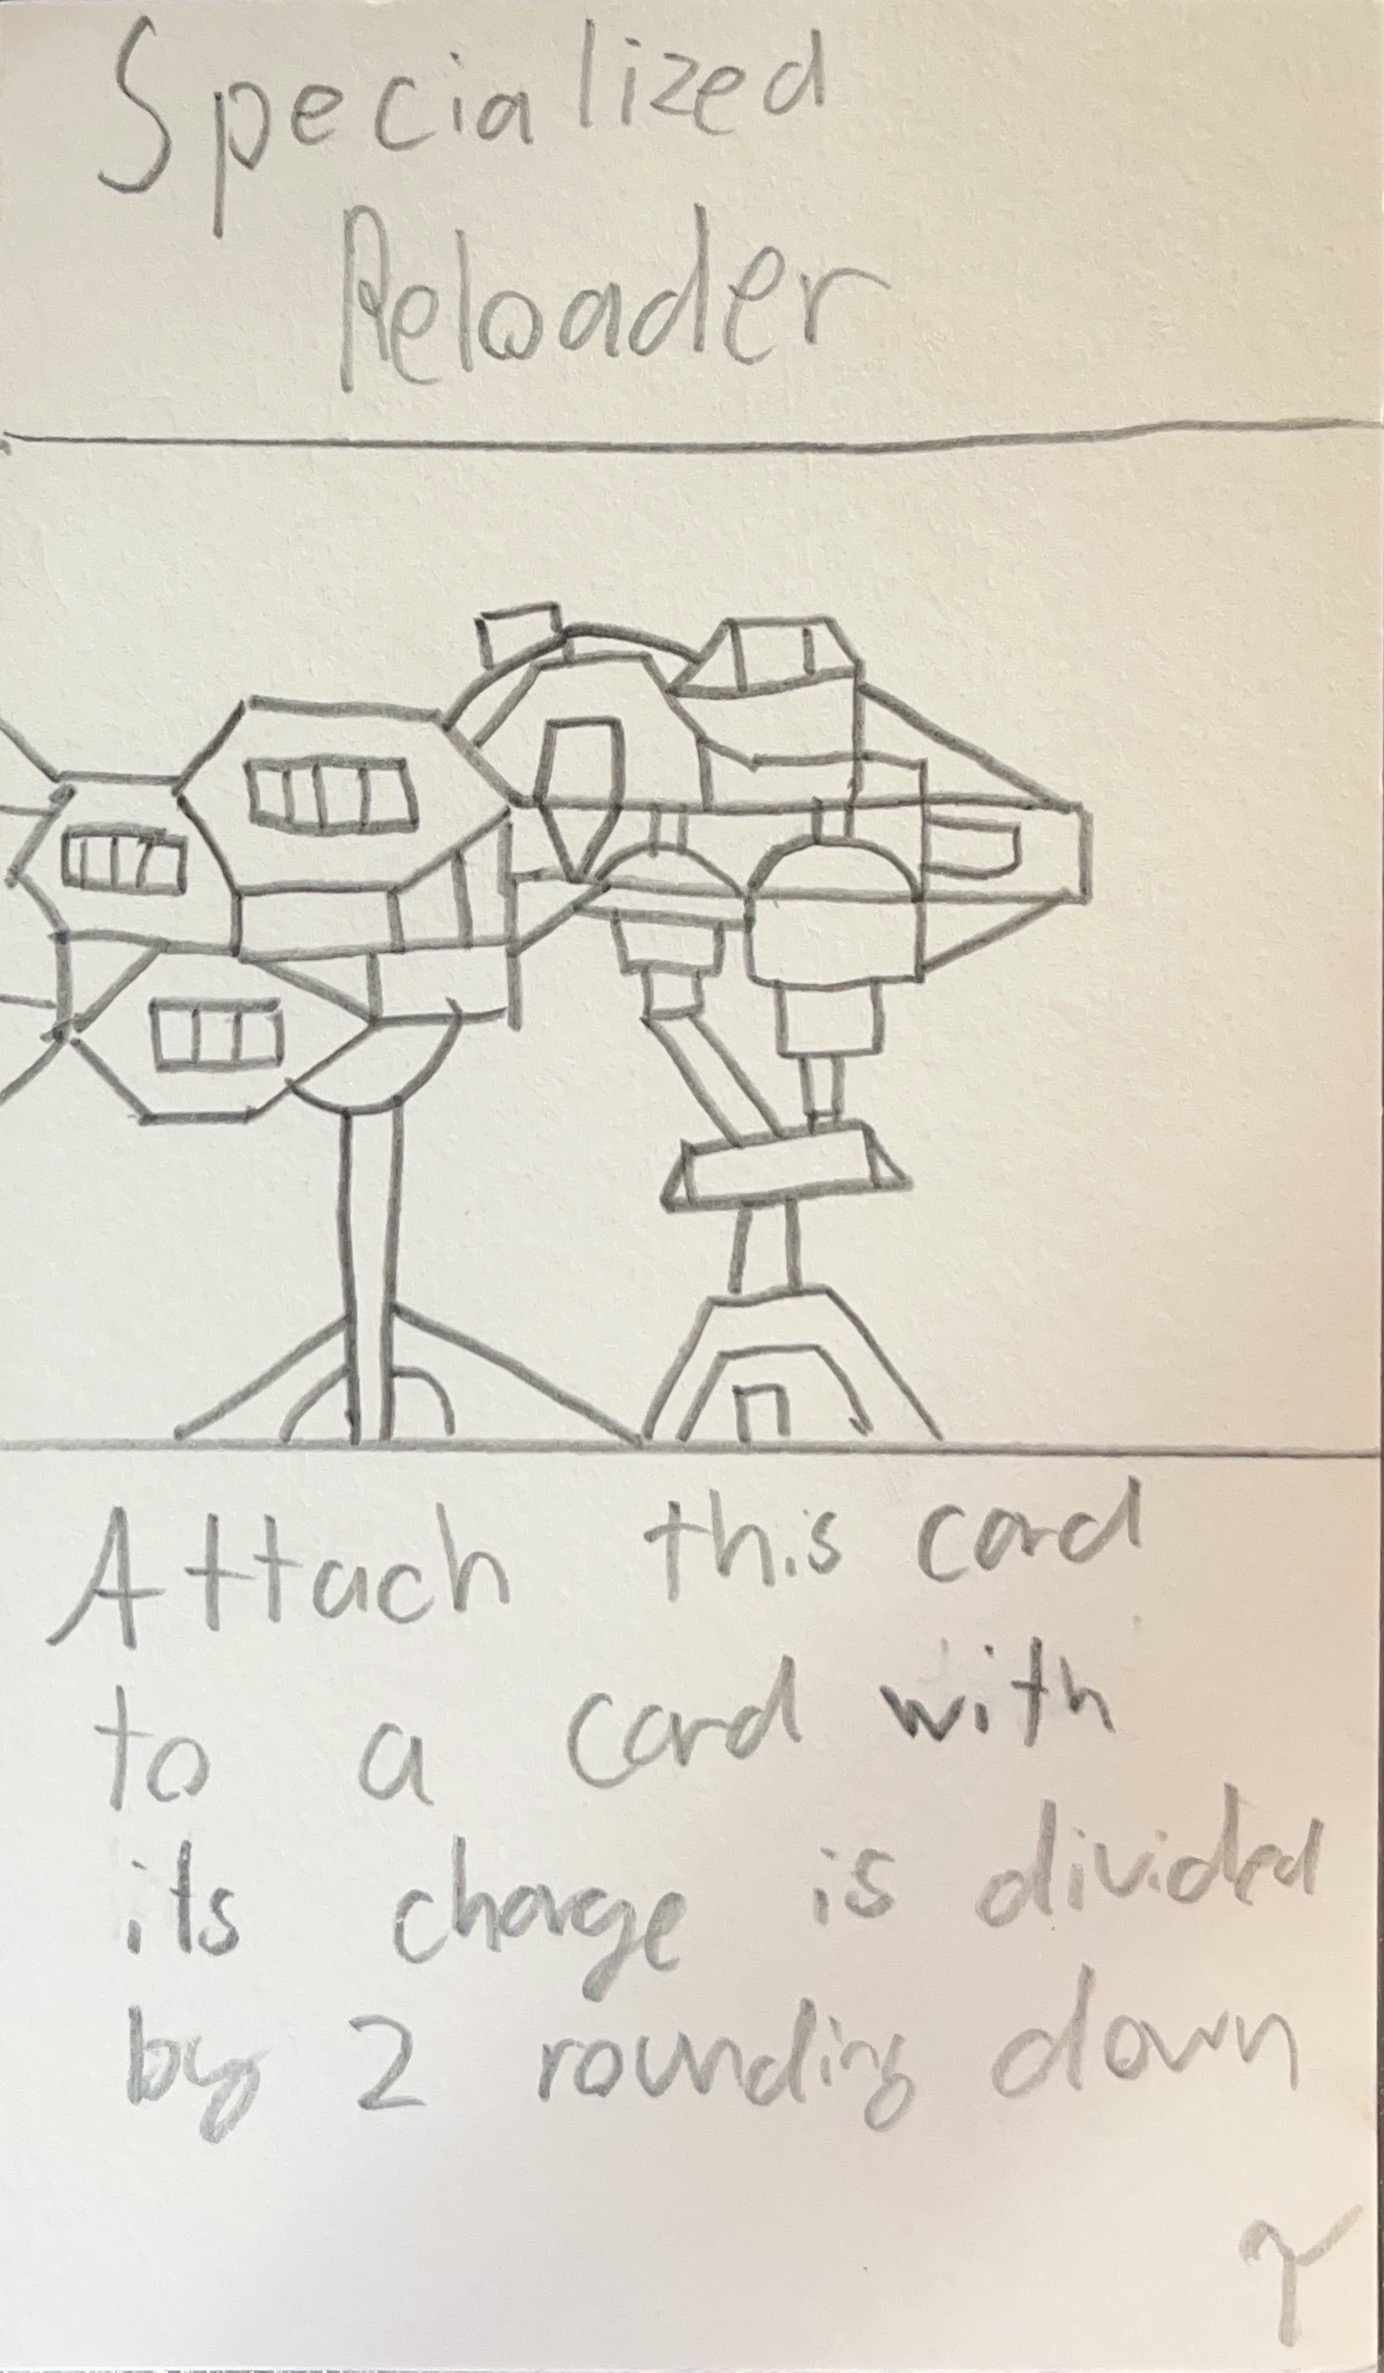 Specialized
Reloader
Attach this card
to a card with
its charge is divided
by 2 rounding down